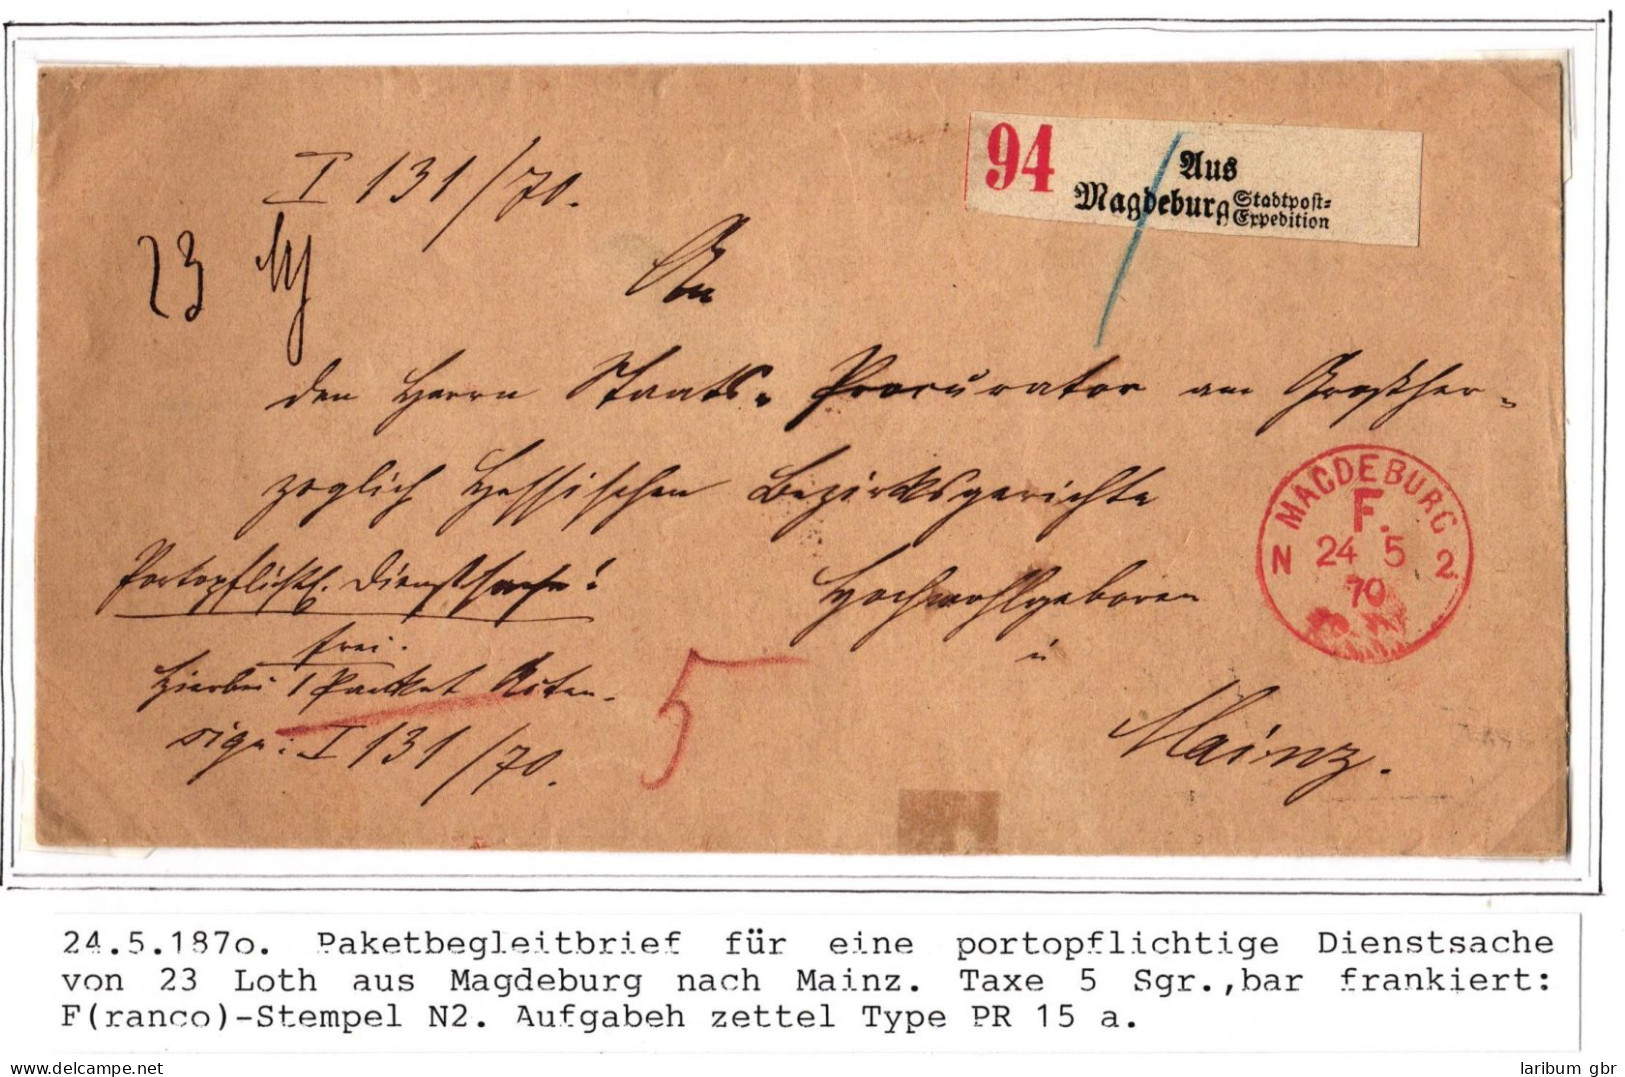 I 131/70.
94
Aus
Magdeburg Stadtpost-
Expedition
23
An
den Herrn Staats-Procurator am Großher-
zoglich Hessischen Bezirksgerichte
Hochwohlgeboren
Mainz.
Portopflicht. Dienstsache!
frei.
Hierbei 1 Packet Acten.
sign: I 131/70.
5
MAGDEBURG
F.
N 24 5 2.
70
24.5.187o. Paketbegleitbrief für eine portopflichtige Dienstsache
von 23 Loth aus Magdeburg nach Mainz. Taxe 5 Sgr.,bar frankiert:
F(ranco)-Stempel N2. Aufgabeh zettel Type PR 15 a.
www.delcampe.net
laribum gbr